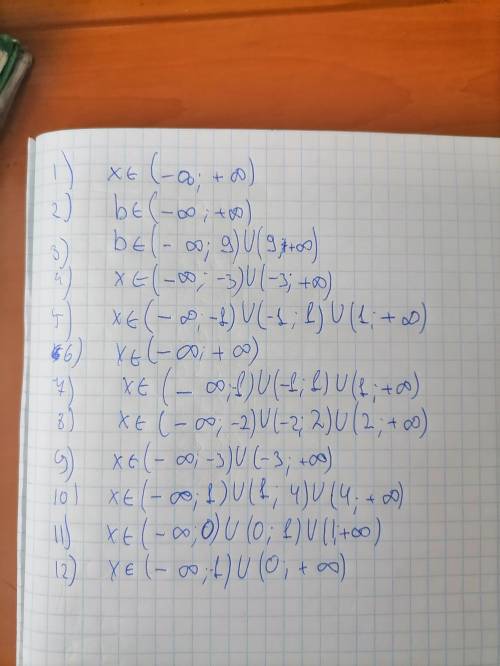 1) x∈(-∞; +∞)
2) b∈(-∞; +∞)
3) b∈(-∞; 9)∪(9; +∞)
4) x∈(-∞; -3)∪(-3; +∞)
5) x∈(-∞; -1)∪(-1; 1)∪(1; +∞)
6) x∈(-∞; +∞)
7) x∈(-∞; 1)∪(-1; 1)∪(1; +∞)
8) x∈(-∞; -2)∪(-2; 2)∪(2; +∞)
9) x∈(-∞; -3)∪(-3; +∞)
10) x∈(-∞; 1)∪(1; 4)∪(4; +∞)
11) x∈(-∞; 0)∪(0; 1)∪(1; +∞)
12) x∈(-∞; 1)∪(0; +∞)